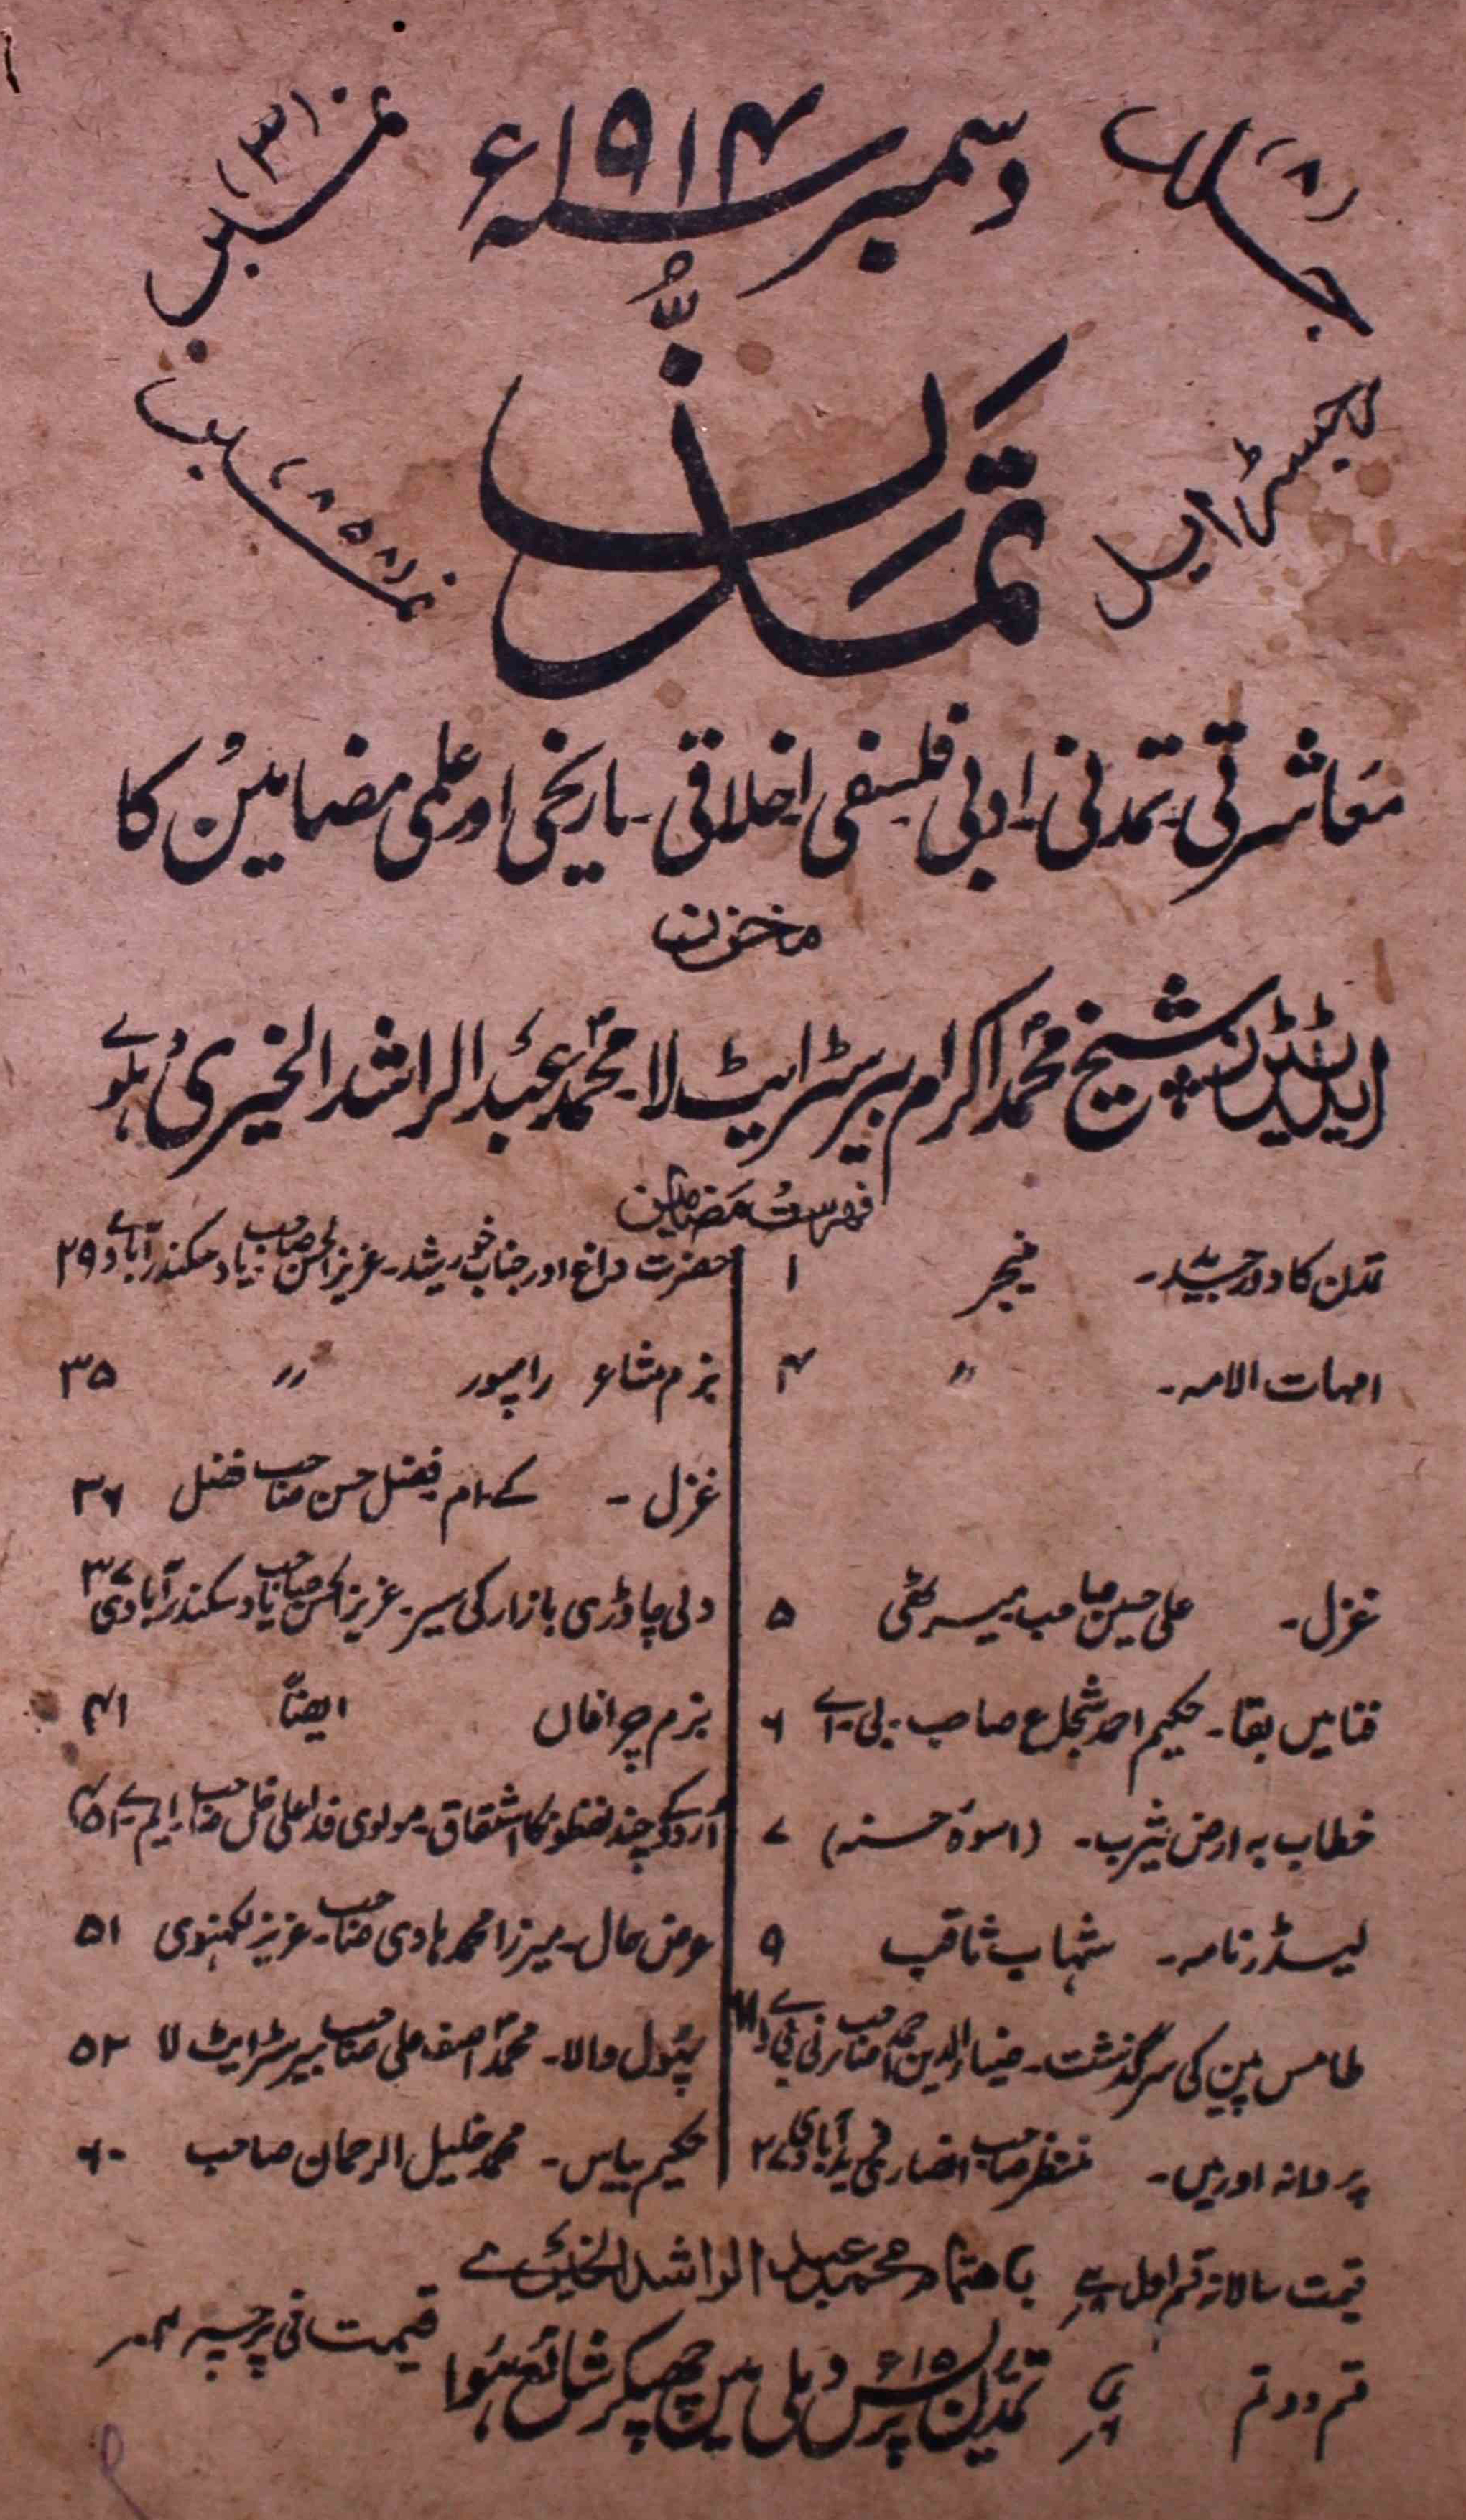 جلد (۸)
دسمبر سنہ ۱۹۱۴ء
نمبر (۳)
رجسٹرڈ ایل
تمدن
نمبر ۸۵۸
معاشرتی۔ تمدنی۔ ادبی فلسفی اخلاقی۔ تاریخی اور علمی مضامین کا
مخزن
ایڈیٹران شیخ محمد اکرام بیرسٹر ایٹ لا۔ محمد عبد الراشد الخیری دہلوے
فہرست مضامین
تمدن کا دور جدید۔ منیجر ۱
امہات الامہ۔ 〃 ۴
غزل۔ علی حسین صاحب میرٹھی ۵
فنا میں بقا۔ حکیم احمد شجاع صاحب۔ بی۔ اے ۶
خطاب بہ ارض یثرب۔ (اسوۂ حسنہ) ۷
لیڈر نامہ۔ شہاب ثاقب ۹
طامس پین کی سرگذشت۔ ضیاء الدین احمد صاحب برنی بی اے
پروانہ اور میں۔ منتظر صاحب انصاری ۲۷
حضرت داغ اور جناب خورشید۔ عزیز الحسن صاحب زیاد سکندرآبادے ۲۹
بزم مشاعرہ رامپور 〃 ۳۵
غزل۔ کے۔ ام فیضل حسن صاحب فضل ۳۶
دلی چاوڑی بازار کی سیر۔ عزیز الحسن صاحب زیاد سکندرآبادی ۳۷
بزم چراغاں ایضاً ۴۱
اُردو کے چند لفظوں کا اشتقاق۔ مولوی فدا علی خاں صاحب ایم۔ اے
عرض حال۔ میرزا محمد ہادی صاحب۔ عزیز لکھنوی ۵۱
پھول والا۔ محمد آصف علی صاحب بیرسٹر ایٹ لا ۵۲
حکیم بیاس۔ محمد خلیل الرحمان صاحب ۶۰
قیمت سالانہ قسم اول
باہتمام محمد عبد الراشد الخیرے
قیمت فی پرچہ ۴؍
قسم دوئم
تمدن پریس دہلی میں چھپکر شائع ہوا